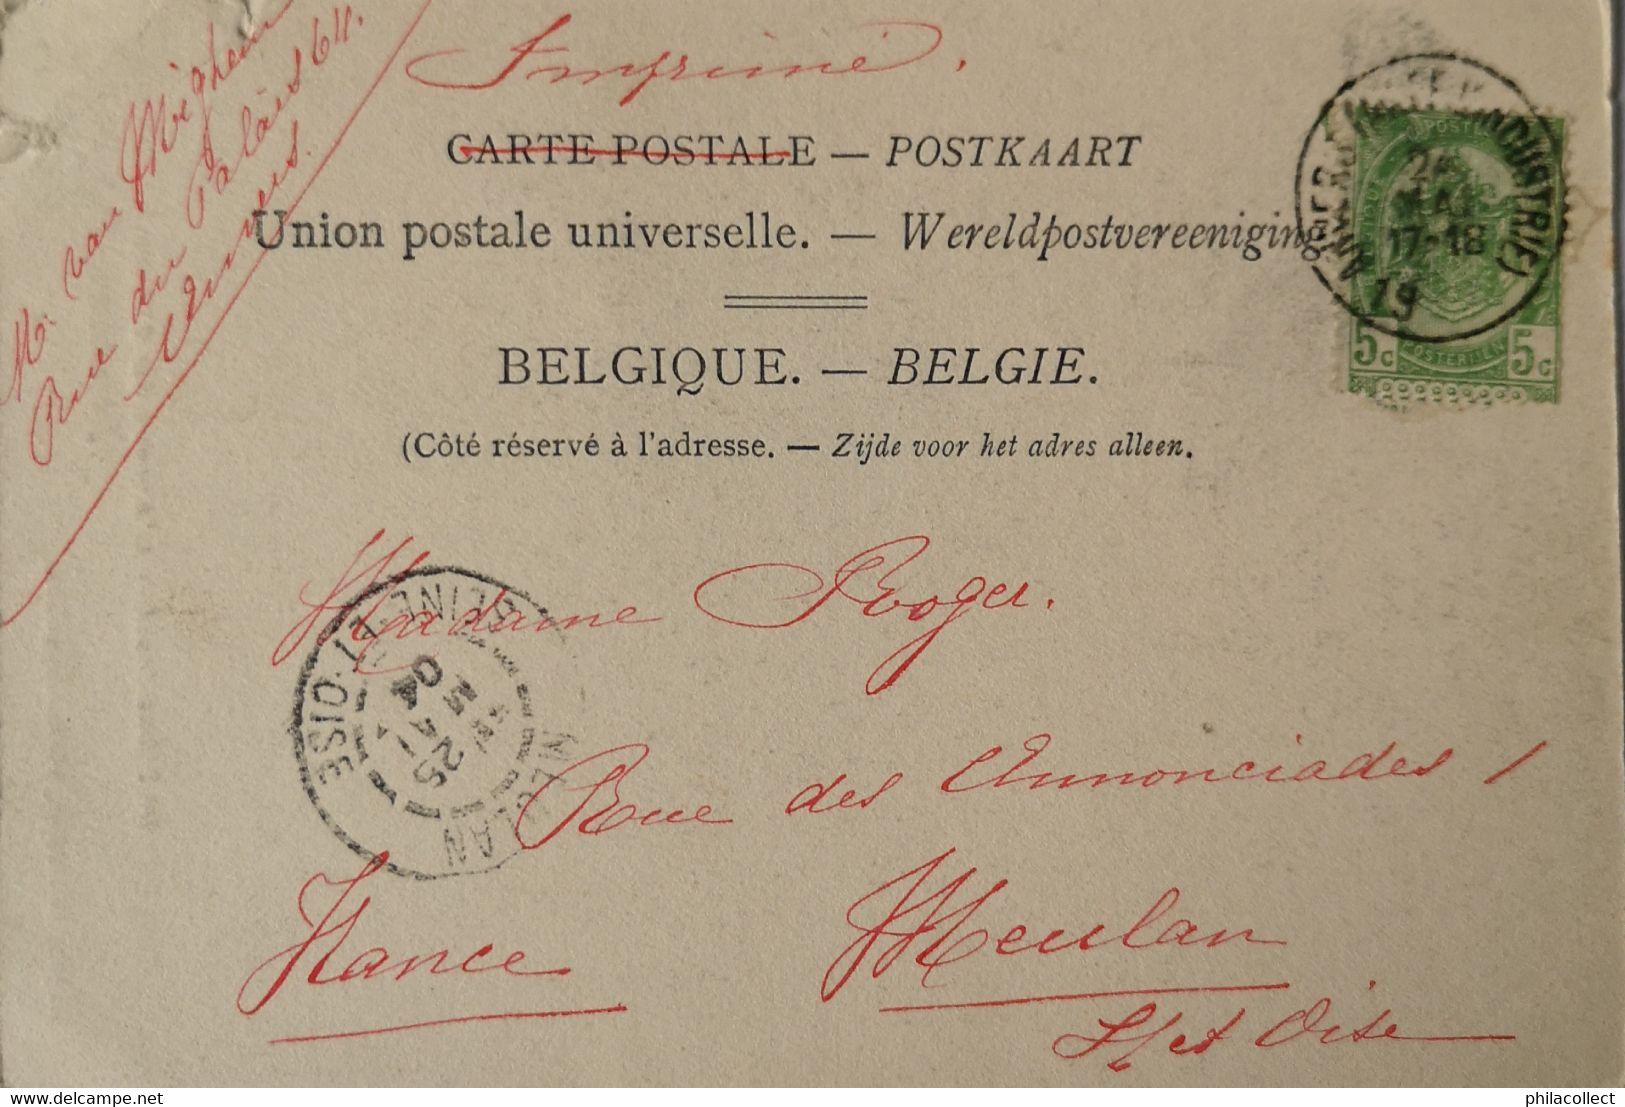 M. van Mighem
Rue du Palais 64.
Anvers.
Imprimé.
CARTE POSTALE — POSTKAART
Union postale universelle. — Wereldpostvereeniging
BELGIQUE. — BELGIE.
(Côté réservé à l'adresse. — Zijde voor het adres alleen.
17-18
19
5c POSTERIJEN 5c
Madame Roger.
SEINE-ET-OISE
25
MEULAN
Rue des Annonciades 1
France
Meulan
S/et Oise
philacollect
philacollect